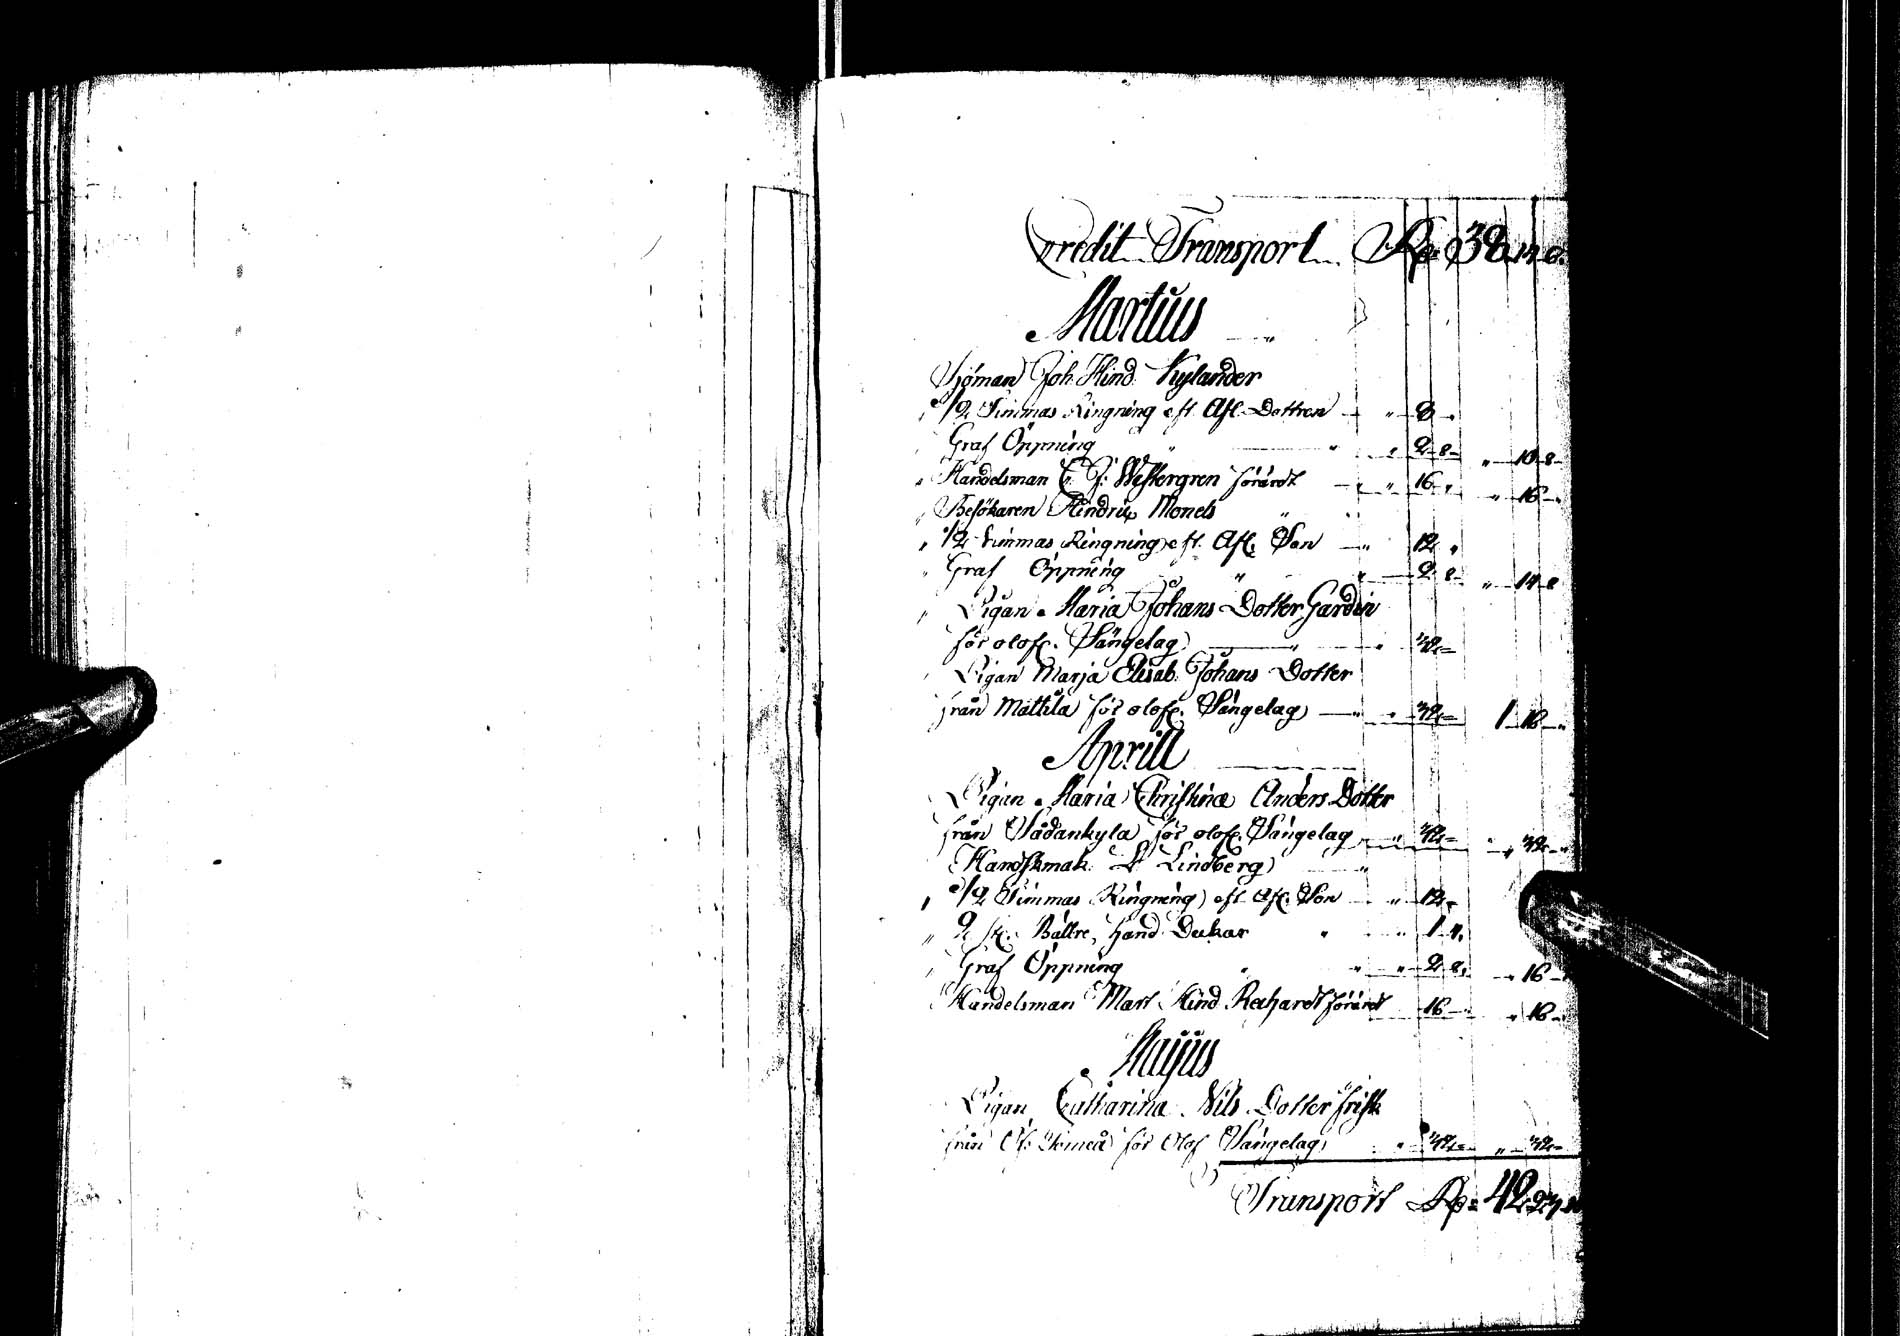 Credit Transport Rd 38 14 8
Martius
Sjöman Joh Hind Kylander
1/2 Timmas Ringning eft Afl. Dottren " 8 "
Graf Öppning " " 2 8 " 10 8
Handelsman C. J. Westergren förärdt " 16 " " 16 "
Besökaren Hindric Monels
1/2 Timmas Ringning eft Afl. Son " 12 "
Graf Öppning " " 2 8 " 14 8
Pigan Maria Johans Dotter Gardin
för olofl. Sängelag " 32
Pigan Marja Elisab. Johans Dotter
från Mattila för olofl. Sängelag " 32 1 16 "
Aprill
Pigan Maria Christina Anders Dotter
från för olofl. Sängelag " 32 " 32 "
Handskmak. Lindberg
1/2 Timmas Ringning eft Afl. Son " 12
2 st. Bättre hand Dukar " " 1 4
Graf Öppning " " 2 8 " 16
Handelsman Mart Hind förärdt 16 " 16
Majus
Pigan Catharina Nils Dotter Frisk
från för Olof Sängelag " 32 " 32
Transport Rd 42